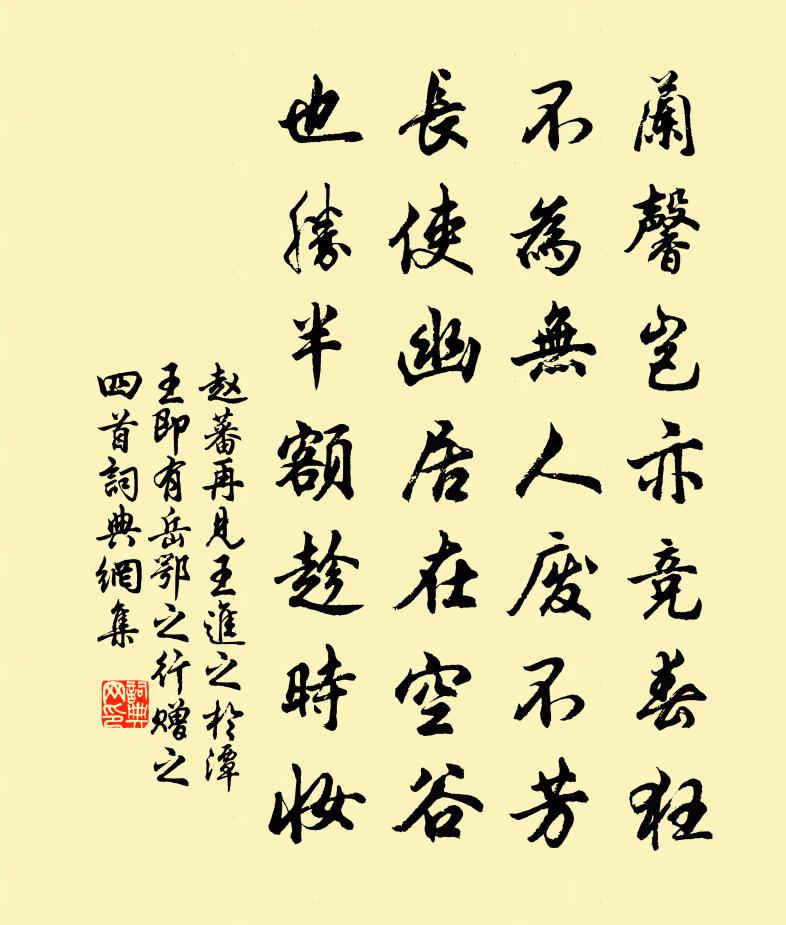 蘭馨豈亦竞春狂
不為無人廢不芳
長使幽居在空谷
也勝半額趁時妆
赵蕃再見王進之於潭
王即有岳鄂之行赠之
四首詞典網集
詞典网印